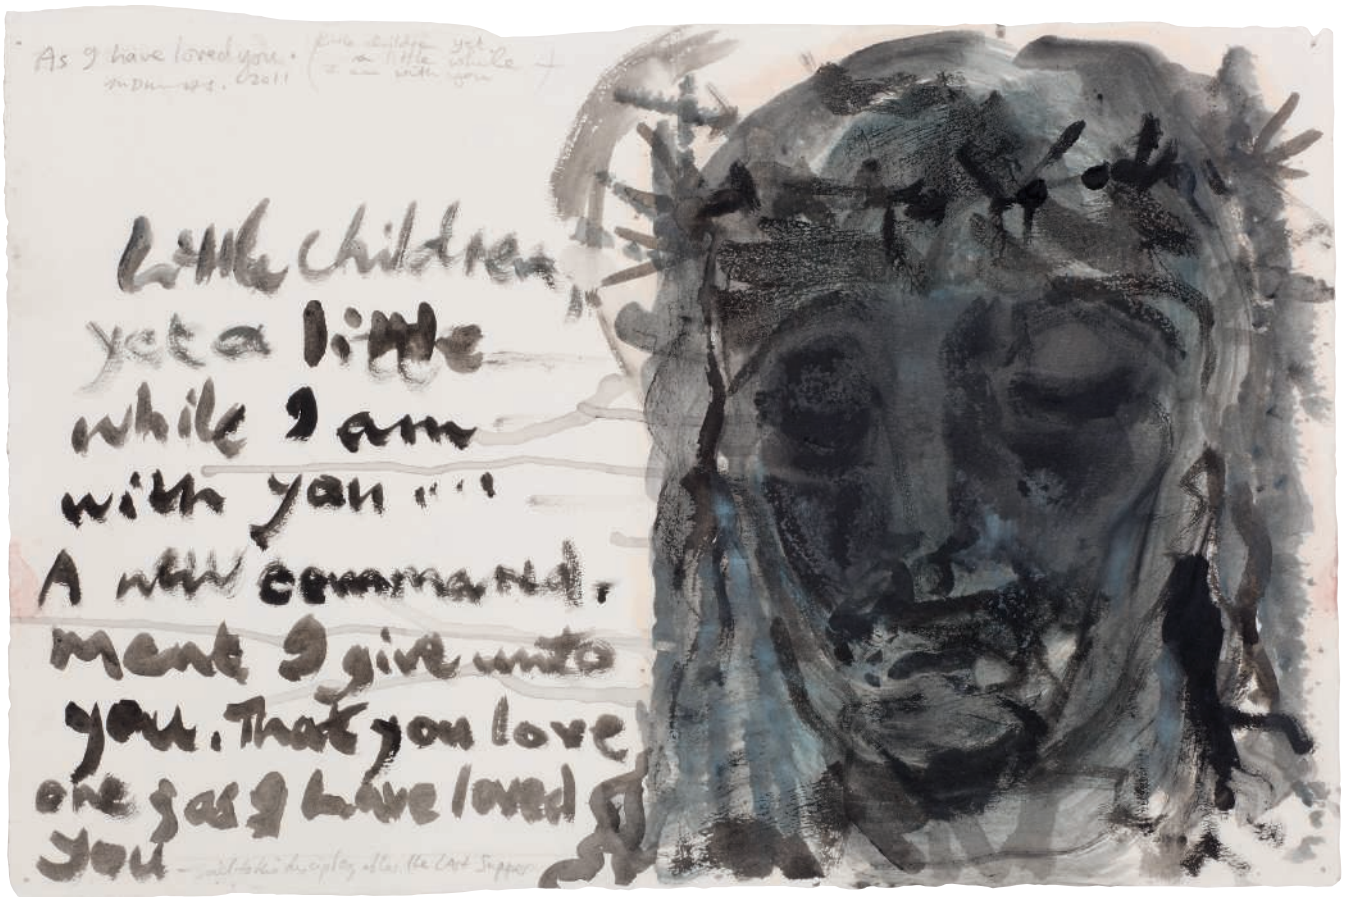 As I have loved you. (Little children yet
a little while
I am with you)
MDumas. 2011
Little Children,
yet a little
while I am
with you ...
A new command.
ment I give unto
you. That you love
one gas I have loved
you - said to his disciples after the Last Supper